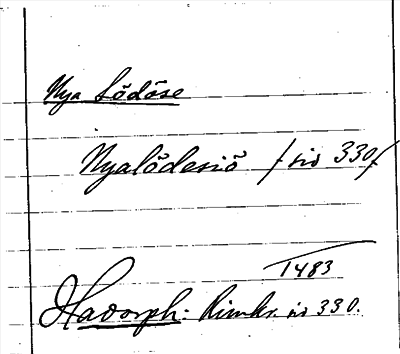 Nya Lödöse
Nyalödesiö /sid 330/
1483
Hadorph: Rimkr. sid 330.